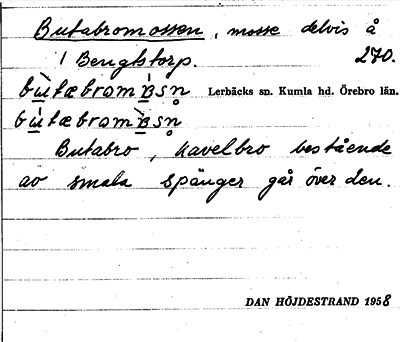 Butabromossen, mosse delvis å
1 Bengtstorp. 270.
bu̲tæbromɞsn̥ Lerbäcks sn. Kumla hd. Örebro län.
bu̲tæbromɞsn̥
Butabro, kavelbro bestående
av smala spänger går över den.
DAN HÖJDESTRAND 1958